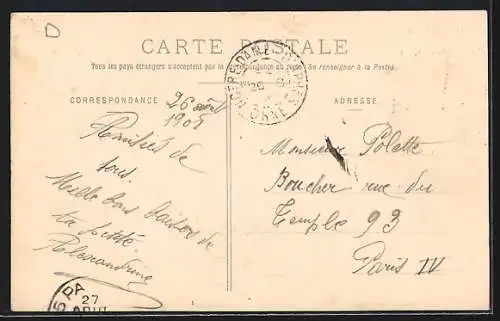 CARTE POSTALE
Tous les pays étrangers n'acceptent pas la correspondance au recto (Se renseigner à la Poste).
CORRESPONDANCE
ADRESSE
26 août
1905
Amitiés de
tous.
Mille bons baisers de
ta petite
Alexandrine
Monsieur Polette
Boucher rue du
Temple 93
Paris IV
ORNE
27
AOUT